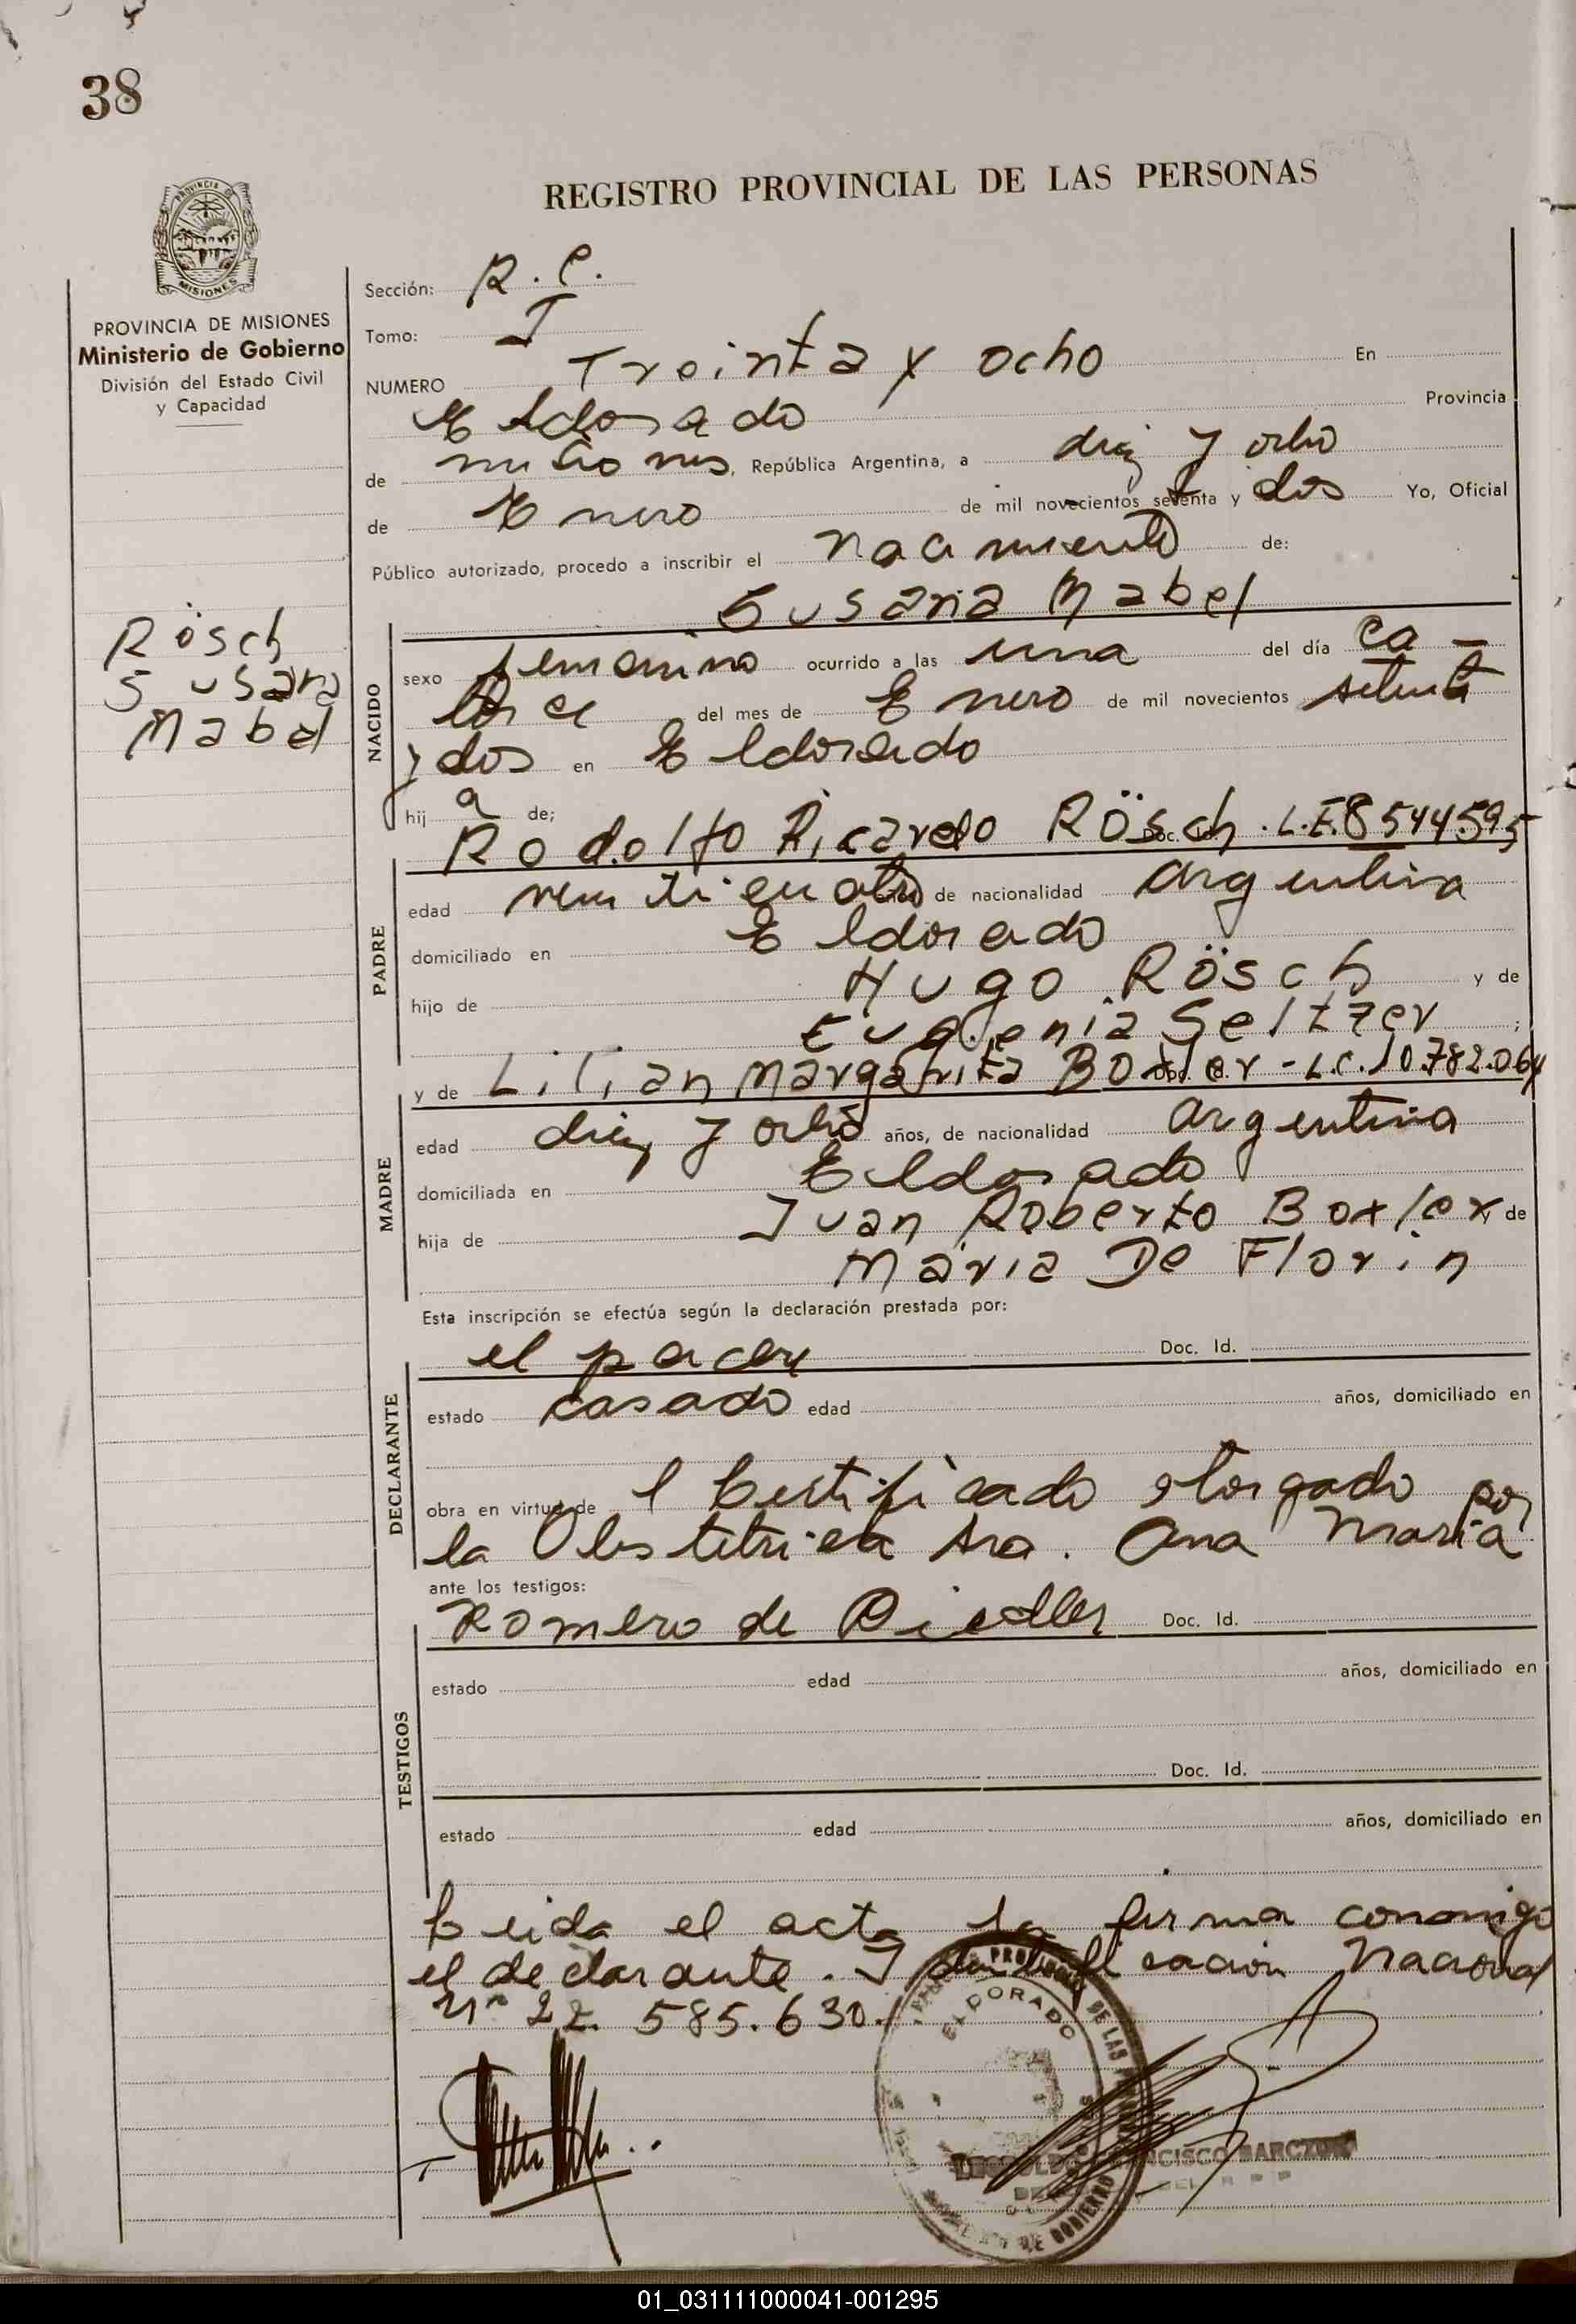 38
REGISTRO PROVINCIAL DE LAS PERSONAS
PROVINCIA DE
MISIONES
PROVINCIA DE MISIONES
Ministerio de Gobierno
División del Estado Civil
y Capacidad
Rösch
Susana
Mabel
Sección: R. C.
Tomo: I
NUMERO Treinta y ocho En
Eldorado Provincia
de misiones, República Argentina, a diez y ocho
de Enero de mil novecientos setenta y dos Yo, Oficial
Público autorizado, procedo a inscribir el nacimiento de:
Susana Mabel
NACIDO
sexo femenino ocurrido a las una del día ca-
torce del mes de Enero de mil novecientos setenta
y dos en Eldorado
hij a de;
Rodolfo Ricardo Rösch. L.E. 8544595
PADRE
edad veinticuatro de nacionalidad argentina
domiciliado en Eldorado
hijo de Hugo Rösch y de
Eugenia Seltzer ;
y de Lilian Margarita Boxler - L.C. 10.782.064
MADRE
edad diez y ocho años, de nacionalidad argentina
domiciliada en Eldorado
hija de Juan Roberto Boxler y de
Maria De Florin
Esta inscripción se efectúa según la declaración prestada por:
el padre Doc. Id.
DECLARANTE
estado casado edad años, domiciliado en
obra en virtud de l Certificado otorgado por
la Obstetrica Sra. Ana Maria
ante los testigos:
Romero de Doc. Id.
TESTIGOS
estado edad años, domiciliado en
Doc. Id.
estado edad años, domiciliado en
Leida el acta la firma conmigo
el declarante. Identificacion Nacional
Nº 22.585.630.
ELDORADO
01_031111000041-001295